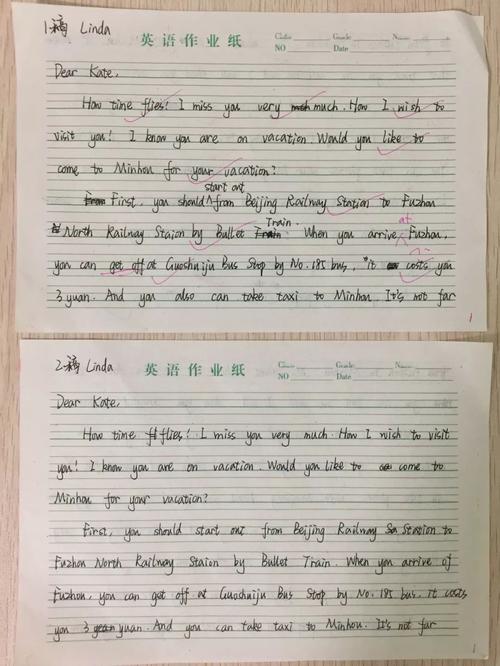 1稿 Linda
英语作业纸
Class Grade Name
NO Date
Dear Kate,
How time flies! I miss you very much. How I wish to
visit you! I know you are on vacation. Would you like to
come to Minhou for your vacation?
start out
First, you should ^ from Beijing Railway Station to Fuzhou
North Railway Staion by Bullet Train. When you arrive at Fuzhou,
you can get off at Guoshuiju Bus Stop by No. 185 bus, it costs you
3 yuan. And you also can take taxi to Minhou. It's not far
1
2稿 Linda
英语作业纸
Class Grade Name
NO Date
Dear Kate,
How time flies! I miss you very much. How I wish to visit
you! I know you are on vacation. Would you like to come to
Minhou for your vacation?
First, you should start out from Beijing Railway Station to
Fuzhou North Railway Staion by Bullet Train. When you arrive of
Fuzhou, you can get off at Guoshuiju Bus Stop by No. 185 bus, it costs
you 3 yuan. And you can take taxi to Minhou. It's not far
1